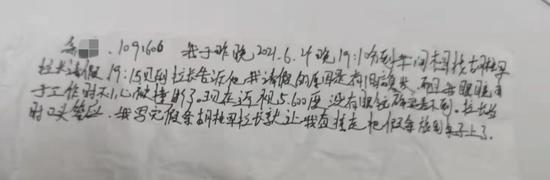 .1091606 我于昨晚2021.6.24晚19:10分到车间想找胡进军
拉长请假19:15见到拉长告诉他,我请假的原因是有眼镜,而且眼睛由
于工作时不小心被撞断了.现在近视5.600度没有眼镜确实看不到.拉长当
时口头答应.我写完假条胡进军拉长就让我直接走把假条放到桌子上了.